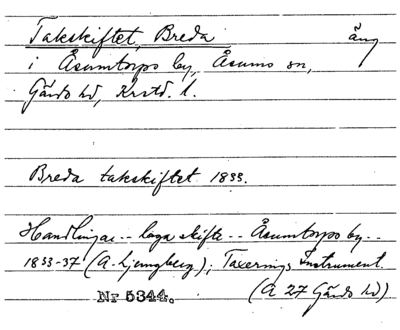 Takskiftet, Breda äng
i Åsumtorps by, Åsums sn,
Gärds hd, Krstd. l.
Breda takskiftet 1833.
Handlingar -- laga skifte -- Åsumtorps by --
1833-37 (A. Ljungberg); Taxerings Instrument.
Nr 5344. (A 27 Gärds hd)